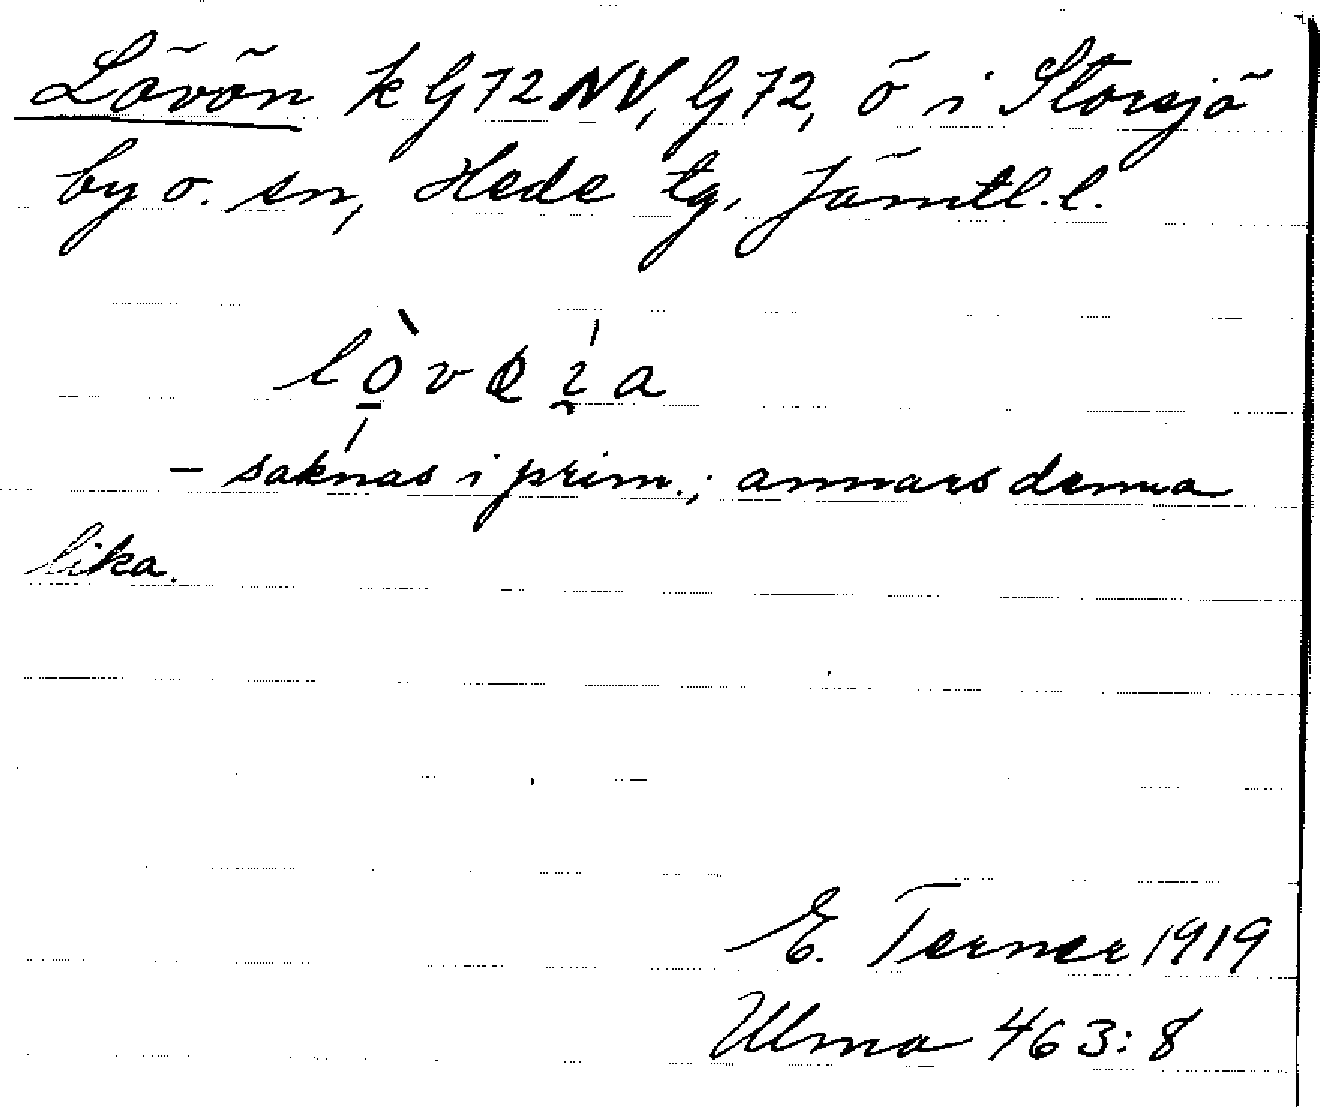 Lövön k G72NV, G72, ö i Storsjö
by o. sn, Hede tg, Jämtl. l.
– saknas i prim.; annars denna
lika.
E. Terner 1919
Ulma 463:8